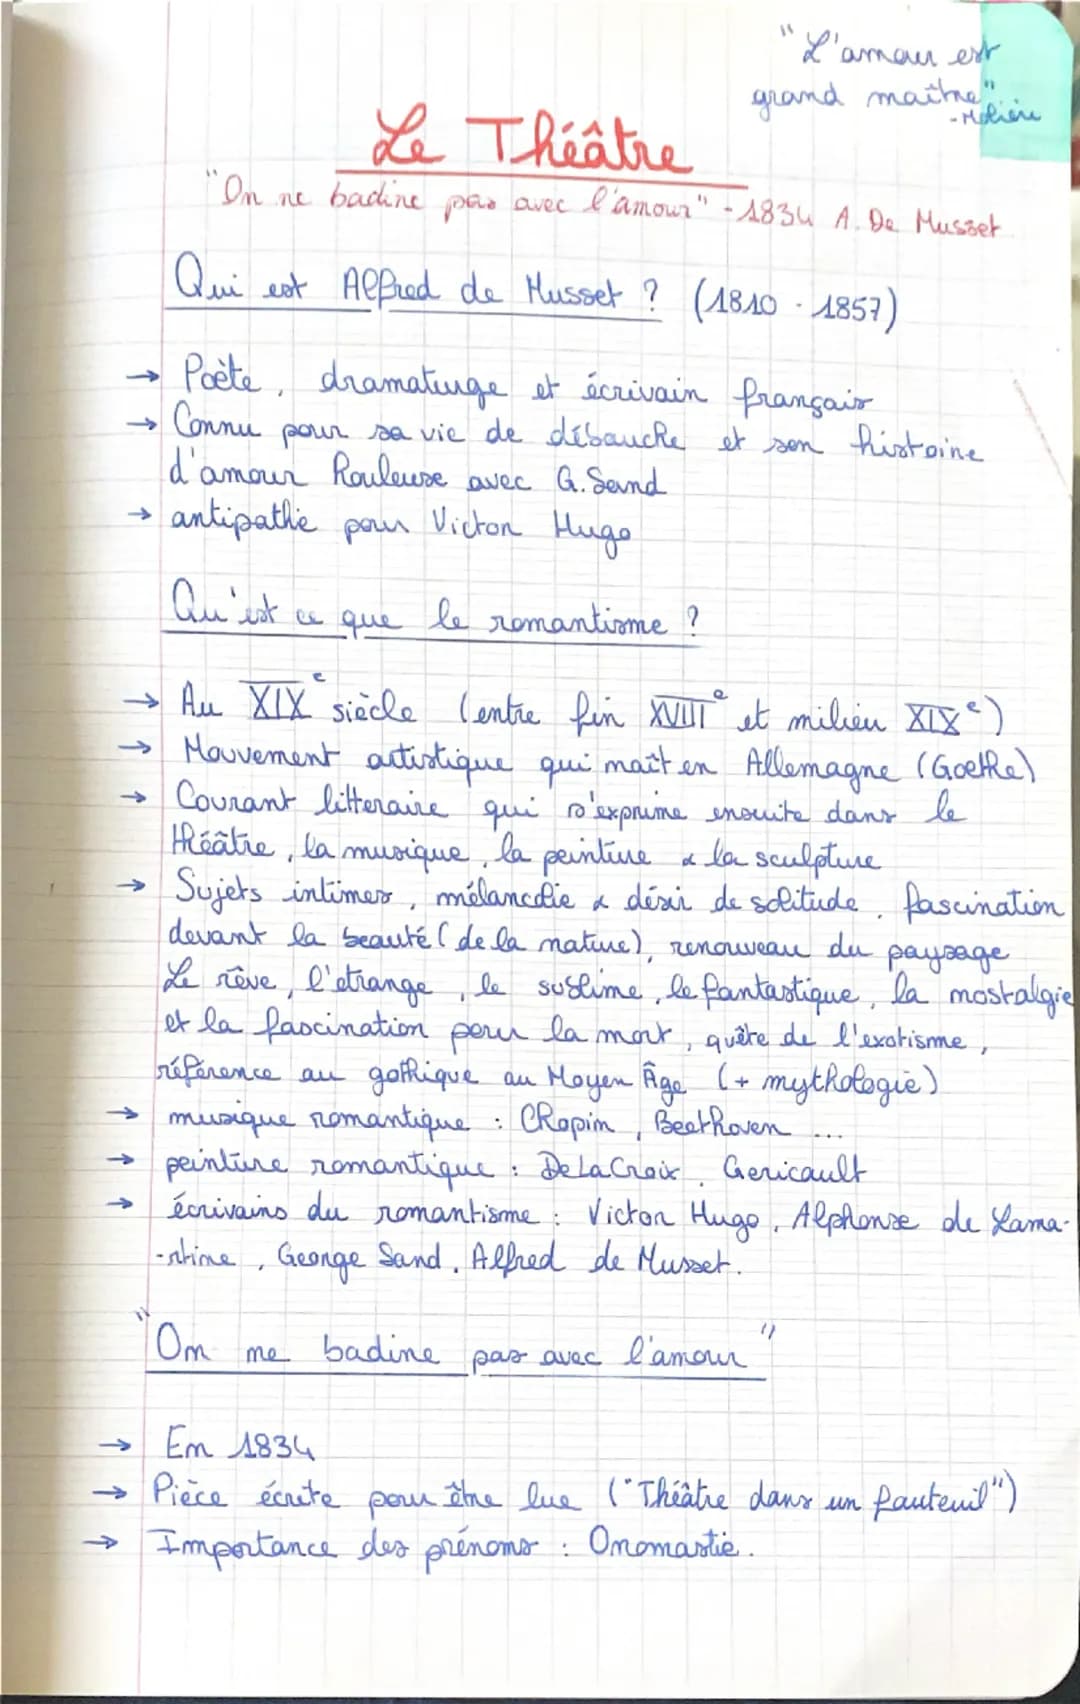 "L'amour est
grand maître"
- Molière
Le Théâtre
"On ne badine pas avec l'amour" - 1834 A. De Musset
Qui est Alfred de Musset ? (1810 - 1857)
→ Poète, dramaturge et écrivain français
→ Connu pour sa vie de débauche et son histoire
d'amour houleuse avec G. Sand
→ antipathie pour Victor Hugo
Qu'est ce que le romantisme ?
→ Au XIXe siècle (entre fin XVIIIe et milieu XIXe)
→ Mouvement artistique qui naît en Allemagne (Goethe)
→ Courant litteraire qui s'exprime ensuite dans le
théâtre, la musique, la peinture & la sculpture
→ Sujets intimes, mélancolie & désir de solitude, fascination
devant la beauté (de la nature), renouveau du paysage
Le rêve, l'etrange, le sublime, le fantastique, la nostalgie
et la fascination pour la mort, quête de l'exotisme,
référence au gothique au Moyen Âge (+ mythologie)
→ musique romantique : Chopin, Beethoven ...
→ peinture romantique : De La Croix, Gericault
→ écrivains du romantisme : Victor Hugo, Alphonse de Lama-
-rtine, George Sand, Alfred de Musset.
"On ne badine pas avec l'amour"
→ En 1834
→ Pièce écrite pour être lue ("Théâtre dans un fauteuil")
→ Importance des prénoms : Onomastie.